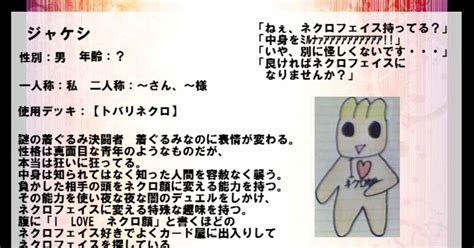 ジャケシ
性別：男　年齢：？
一人称：私　二人称：～さん、～様
使用デッキ：【トバリネクロ】
謎の着ぐるみ決闘者　着ぐるみなのに表情が変わる。
性格は真面目な青年のようなものだが、
本当は狂いに狂ってる。
中身は知られてはなく知った人間を容赦なく襲う。
負かした相手の頭をネクロ顔に変える能力を持つ。
その能力を使い夜な夜な闇のデュエルをしかけ、
ネクロフェイスに変える特殊な趣味を持つ。
腹に「I LOVE　ネクロ顔」と書くほどの
ネクロフェイス好きでよくカード屋に出入りして
ネクロフェイスを探している
「ねぇ、ネクロフェイス持ってる？」
「中身をﾐﾙﾅｧｱｱｱｱｱｱｱｱｱ!!」
「いや、別に怪しくないです・・・」
「良ければネクロフェイスに
なりませんか？」
I
ネクロ顔